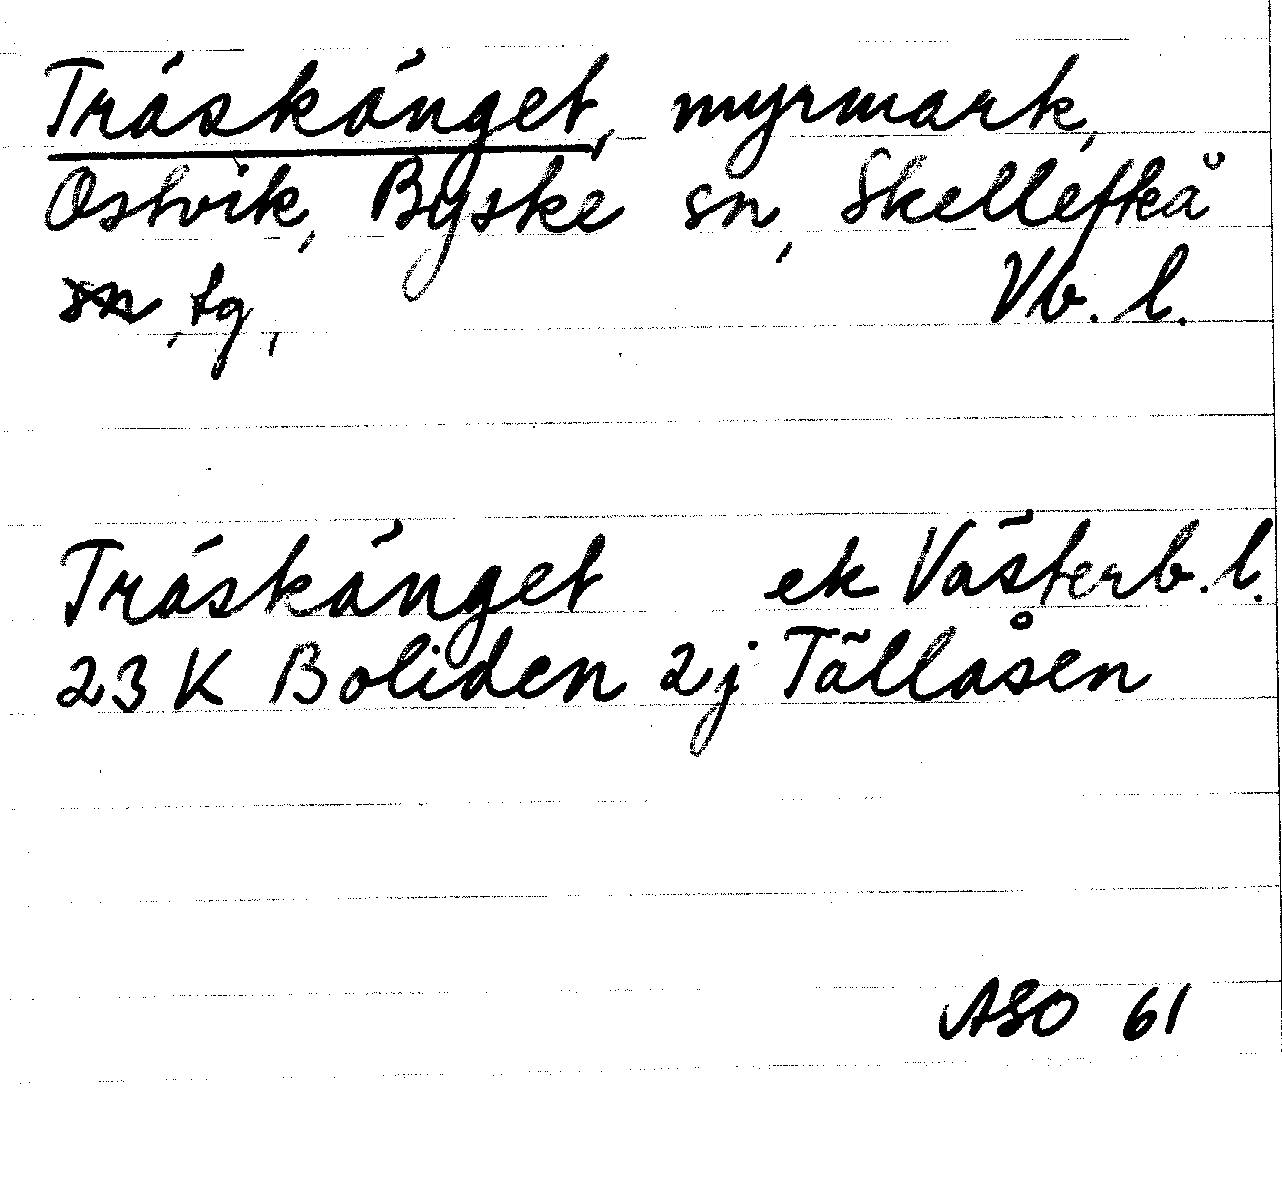 Träskänget, myrmark,
Ostvik, Byske sn, Skellefteå
sn, tg, Vb. l.
Träskänget ek Västerb. l.
23 K Boliden 2j Tällåsen
ASO 61